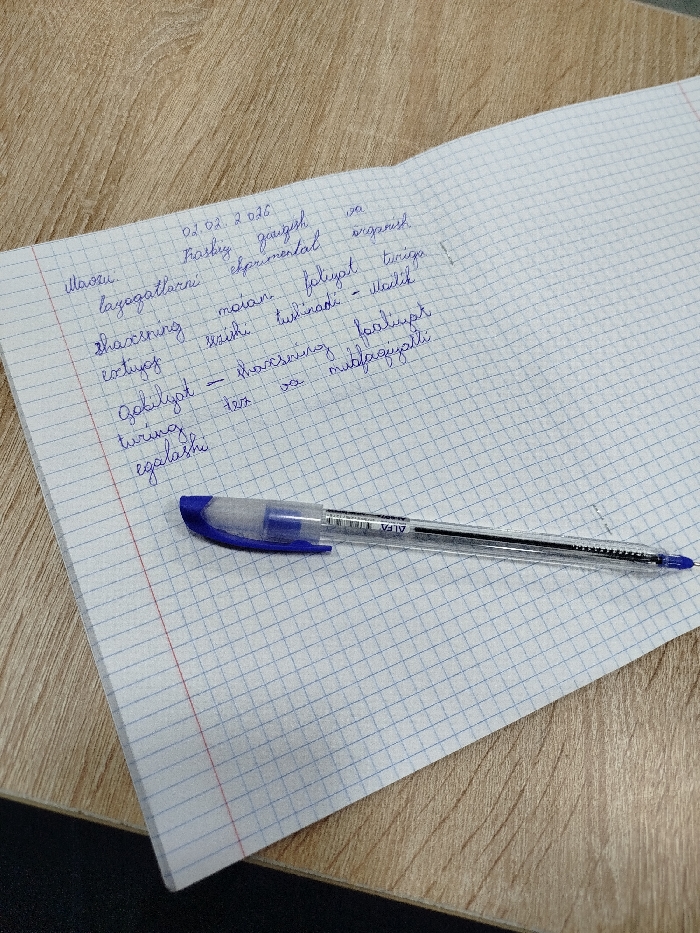 02.02.2026
Mavzu. Kasbiy qiziqish va
layoqatlarni ekprimental organish
shaxsning malum faliyat turiga
extiyoj sezishi tushinadi - Mailik
Qobilyat - shaxsning faaliyat
turing tez va muofaqiyatli
egalashi
ALFA